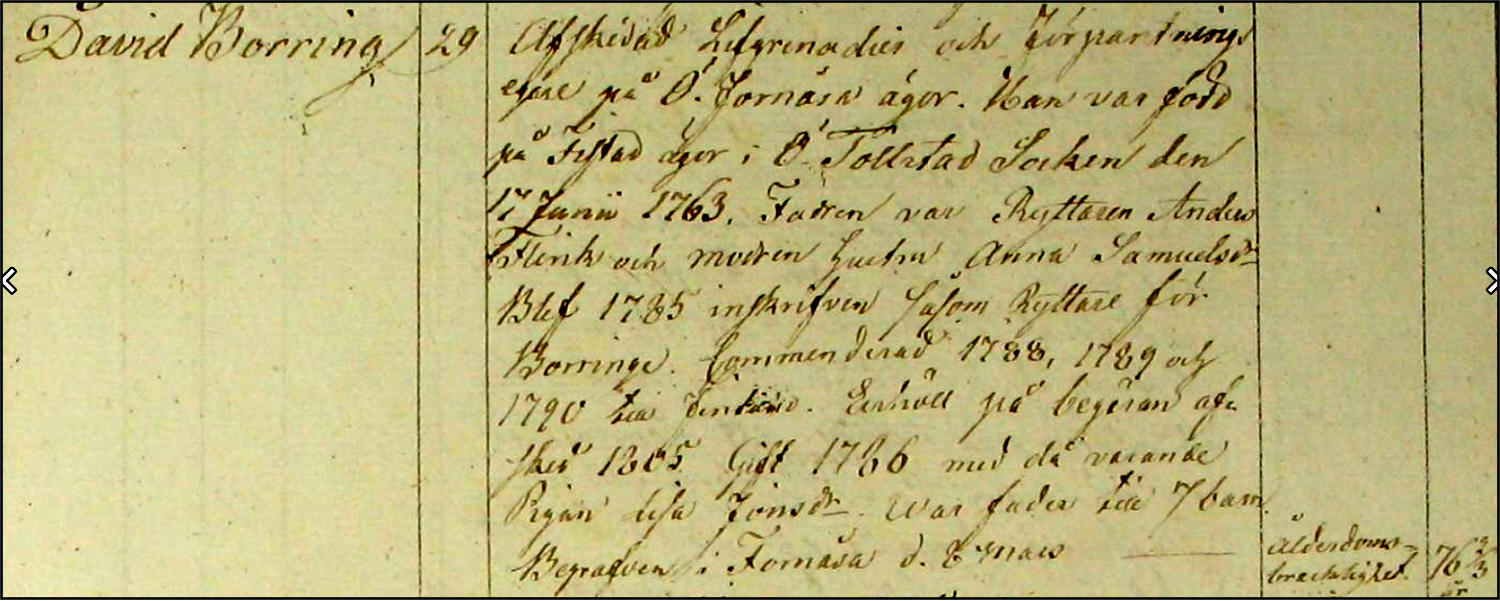 David Borring 29 Afskedad Lifgrenadier och Förpantnings
egare på Ö. Fornåsa ägor. Han var född
på Fifstad ägor i Ö Tollstad Socken den
17 Junii 1763. Fadren var Ryttaren Anders
Flink och modren hustru Anna Samuelsdr
Blef 1785 inskrifven såsom Ryttare för
Borringe. Commenderad 1788, 1789 och
1790 till Finland. Erhöll på begäran af-
sked 1805. Gift 1786 med då varande
Pigan Lisa Jonsdr. War fader till 7 barn
Begrafven i Fornåsa d. 8 Mars — Ålderdoms-
bräcklighet. 76 år